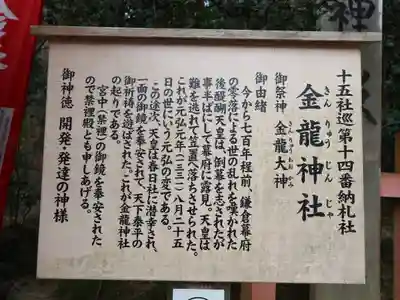 十五社巡第十四番納札社
金龍神社
きんりゅうじんじゃ
御祭神 金龍大神
きんりゅうおおかみ
御由緒
今から七百年程前、鎌倉幕府
の零落による世の乱れを嘆かれた
後醍醐天皇は、倒幕を志されたが
事半ばにして幕府に露見、天皇は
難を逃れて笠置へ落ちさせられた。
これが元弘元年(一三三一)八月二十五
日の世にいう元弘の変である。
この途次、天皇は春日社に潜幸され、
一面の御鏡を奉安されて、天下泰平の
御祈祷を遊ばされた。これが金龍神社
の起りである。
宮中(禁裡)の御鏡を奉安された
ので禁裡殿とも申しあげる。
御神徳 開発・発達の神様
神